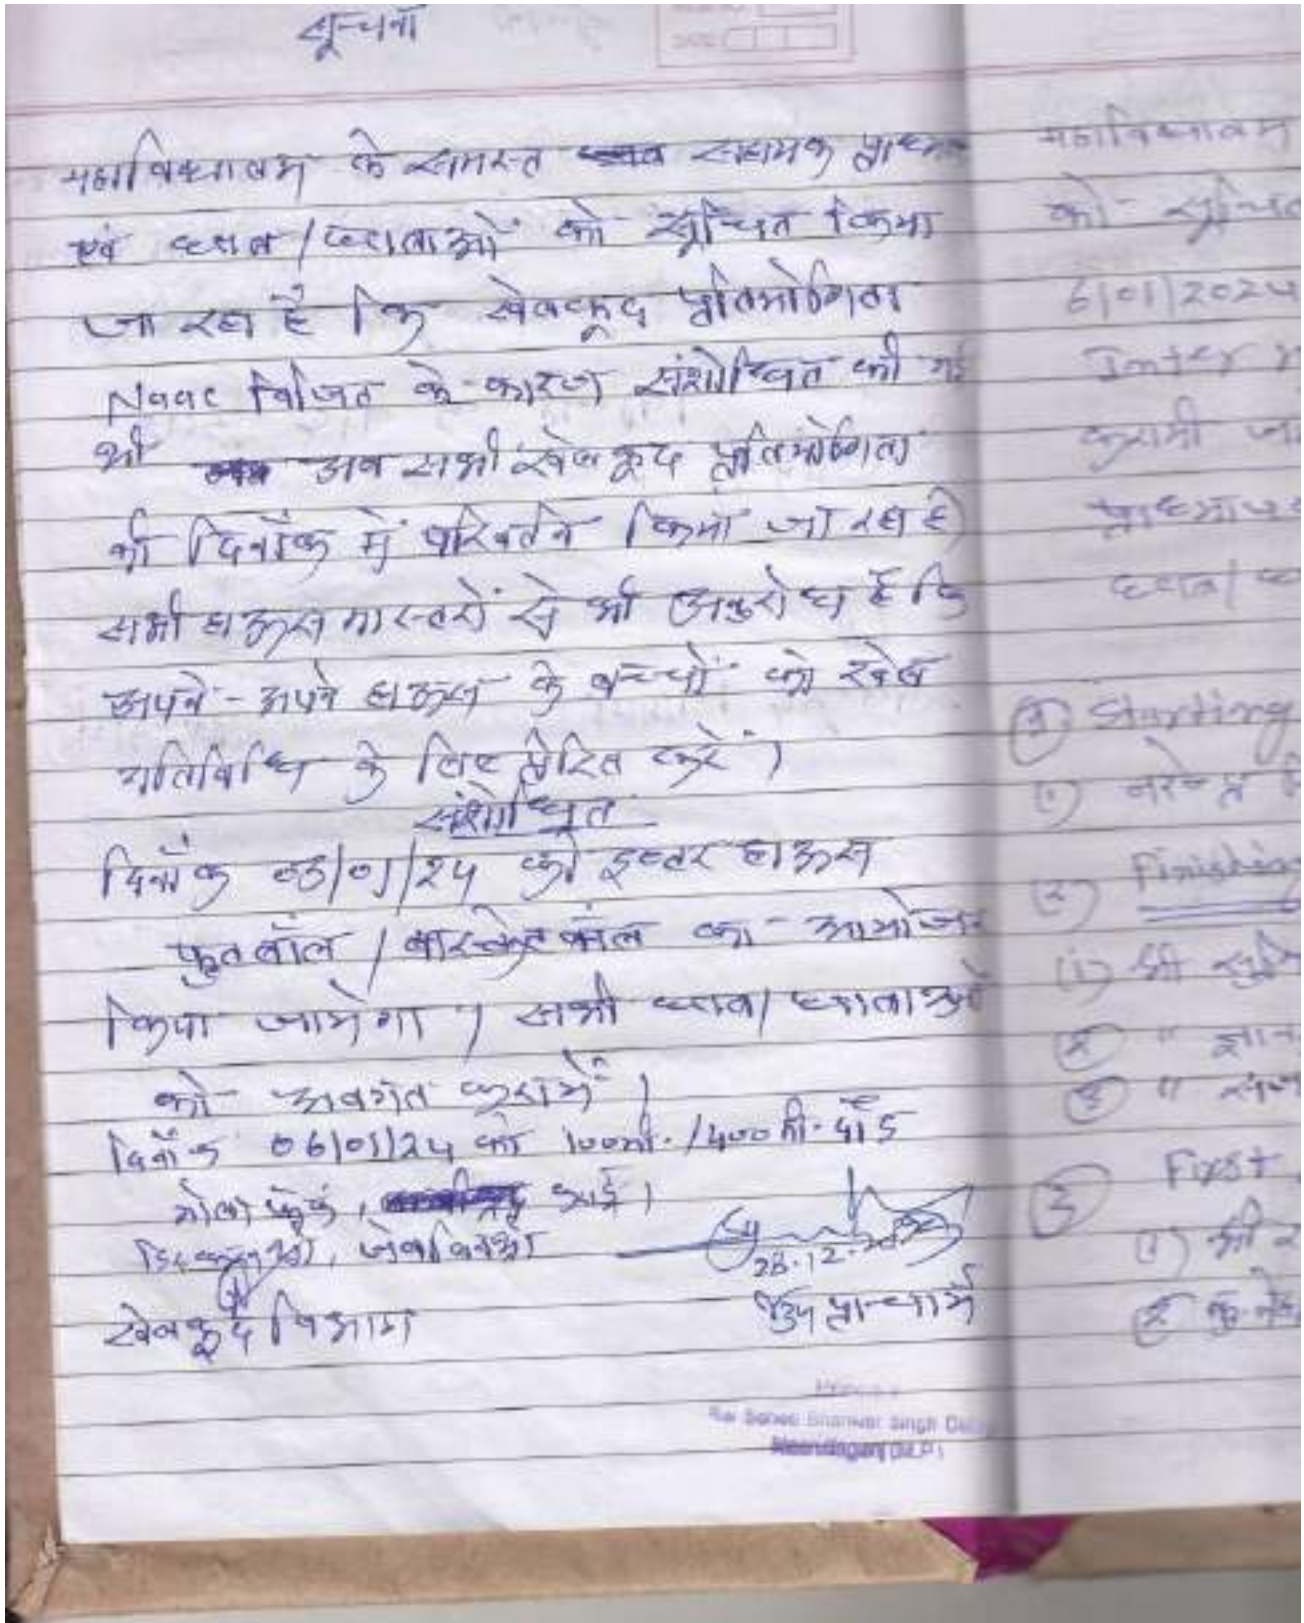 सूचना
महाविद्यालय के समस्त सहायक प्राध्या
एवं छात्र/छात्राओं को सूचित किया
जा रहा है कि खेलकूद प्रतियोगिता
Naac विजिट के कारण संशोधित की गई
थी अब सभी खेलकूद प्रतियोगिता
की दिनाँक में परिवर्तन किया जा रहा है
सभी हाऊस मास्टरों से भी अनुरोध है कि
अपने-अपने हाऊस के बच्चों को खेल
गतिविधि के लिए प्रेरित करें।
संशोधित
दिनाँक 05/01/24 को इण्टर हाऊस
फुटबॉल / बास्केटबॉल का आयोजन
किया जायेगा। सभी छात्र/छात्राओं
को अवगत करायें।
दिनाँक 06/01/24 को 100मी./400मी. दौड़
गोला फेंक,
जेवलिनथ्रो
28.12.
खेलकूद विभाग
प्राचार्य
Singh
महाविद्यालय
को सूचित
6/01/2024
Inter
करायी जा
प्राध्याप
छात्र/
① Starting
(1) नरेन्द्र
(2) Finishing
(1) श्री
② "
③ "
First
(1) श्री
②